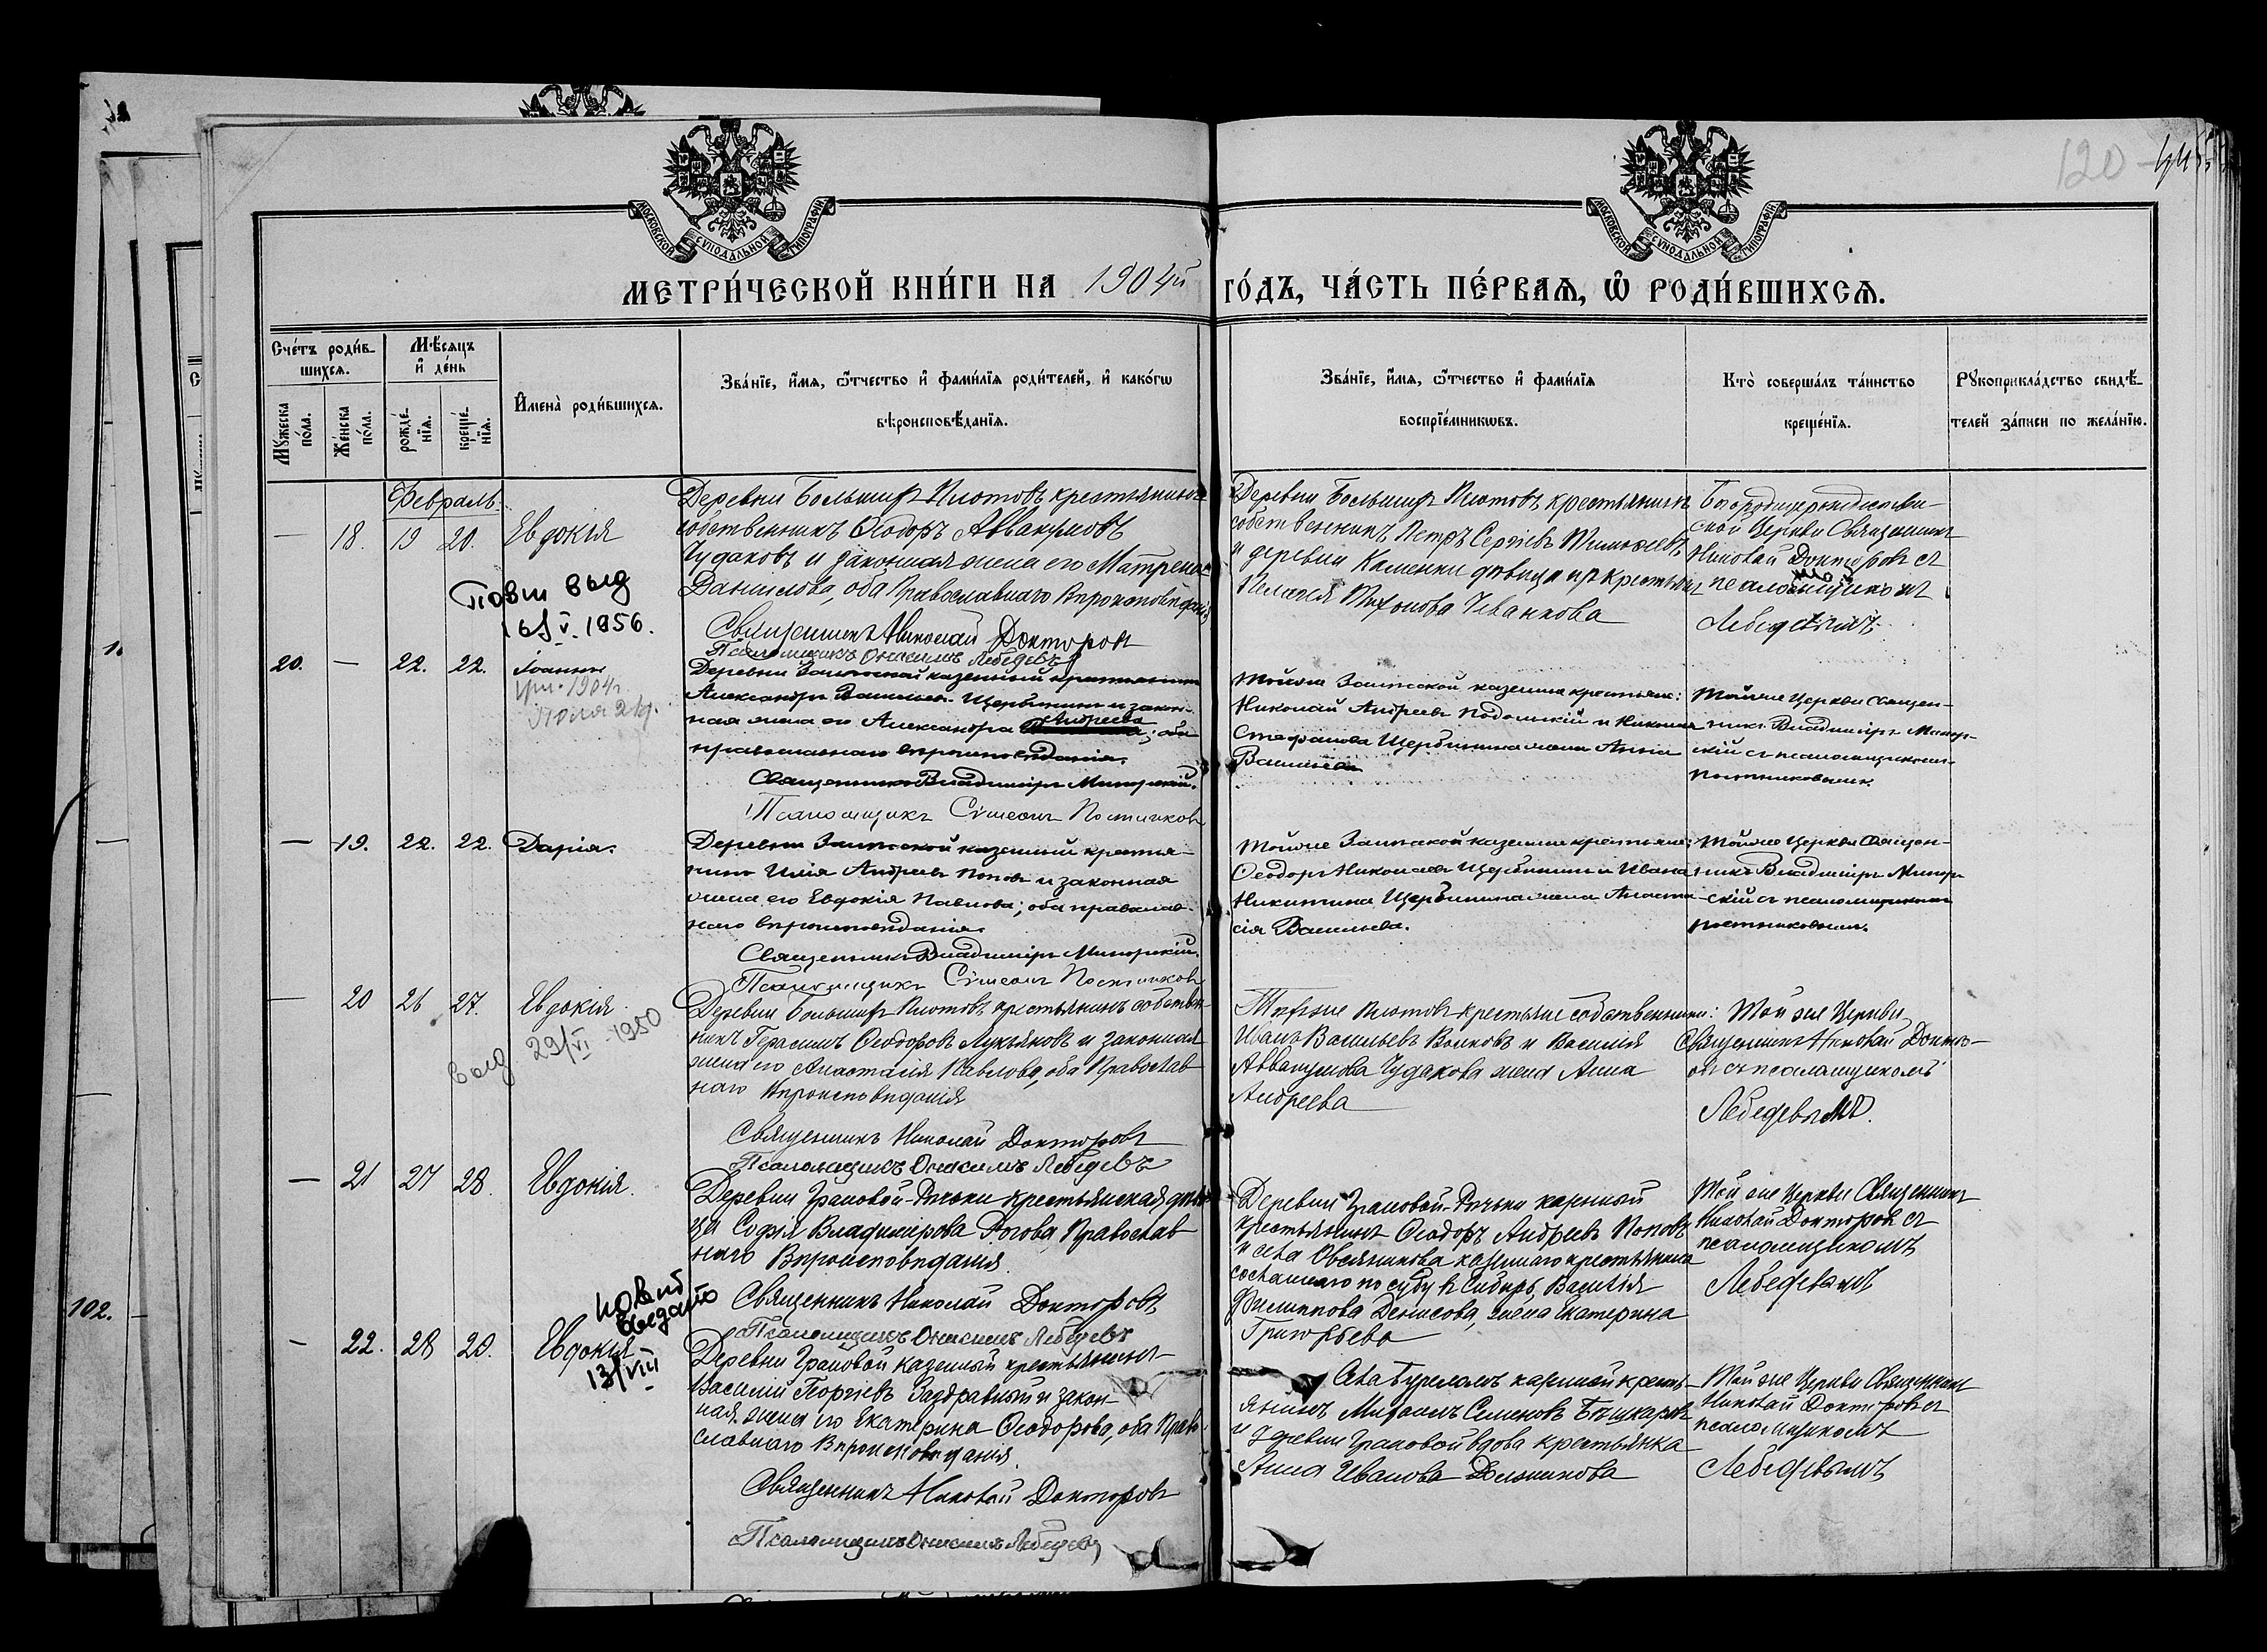 120
МОСКОВСКОЙ СУНОДАЛЬНОЙ ТИПОГРАФІИ
МОСКОВСКОЙ СУНОДАЛЬНОЙ ТИПОГРАФІИ
МЕТРИ́ЧЕСКОЙ КНИ́ГИ НА 1904й ГО́ДЪ, ЧА́СТЬ ПЕ́РВАѦ, Ѡ҆ РОДИ́ВШИХСѦ.
Сче́тъ роди́в-
шихсѧ.
Мꙋжеска
по́ла.
Же́нска
по́ла.
Мѣ́сѧцъ
и҆ де́нь
рожде́-
нїѧ.
креще́-
нїѧ.
И҆мена̀ роди́вшихсѧ.
Зва́нїе, и҆́мѧ, ѻ҆́тчество и҆ фами́лїѧ роди́телей, и҆ како́гѡ
вѣроисповѣ́данїѧ.
Зва́нїе, и҆́мѧ, ѻ҆́тчество и҆ фами́лїѧ
воспрїе́мникѡвъ.
Кто̀ соверша́лъ та́инство
креще́нїѧ.
Рꙋкоприкла́дство свидѣ́-
телей за́писи по жела́нїю.
Февраль
— 18. 19 20. Евдокія
Деревни Большихъ Плотовъ крестьянинъ
собственникъ Ѳеодоръ Аввакумовъ
Чудаковъ и законная жена его Матрена
Данилова, оба Православнаго Вѣроисповѣданія
Священникъ Николай Докторовъ
Псаломщикъ Онисимъ Лебедевъ
Деревни Большихъ Плотовъ крестьянинъ
собственникъ Петръ Сергіевъ Тимоѳеевъ
и деревни Каменки дѣвица изъ крестьянъ
Пелагія Тихонова Иванкова
ской Церкви Священникъ
Николай Докторовъ съ
псаломщикомъ
Лебедевымъ
Повт выд
16/V 1956.
20. — 22. 22. Іоаннъ
1904г.
Деревни казенный крестьянинъ
Александръ Васильевъ Щербининъ и закон-
ная жена его Александра Андреева; оба
православнаго вѣроисповѣданія.
Священникъ Владиміръ
Псаломщикъ Сѵмеонъ Постниковъ
Тойже казенные крестьяне:
Николай Андреевъ Подольскій и Никиты
Стефанова Щербинина жена Анна
Васильева
Тойже Церкви Священ-
никъ Владиміръ
съ псаломщикомъ
Постниковымъ.
— 19. 22. 22. Дарія.
Деревни казенный крестья-
нинъ Илія Андреевъ Поповъ и законная
жена его Евдокія Павлова; оба православ-
наго вѣроисповѣданія.
Священникъ Владиміръ
Псаломщикъ Сѵмеонъ Постниковъ
Тойже казенные крестьяне:
Ѳеодоръ Николаевъ Щербининъ и Ивана
Никитина Щербинина жена Анаста-
сія Васильева.
Тойже Церкви Священ-
никъ Владиміръ
съ псаломщикомъ
Постниковымъ.
— 20 26 27. Евдокія
выд 29/VI-1950
Деревни Большихъ Плотовъ крестьянинъ собствен-
никъ Герасимъ Ѳеодоровъ Лукьяновъ и законная
жена его Анастасія Павлова, оба Православ
наго Вѣроисповѣданія
Священникъ Николай Докторовъ
Псаломщикъ Онисимъ Лебедевъ
Тѣхже Плотовъ крестьяне собственники:
Иванъ Васильевъ Волковъ и Василія
Аввакумова Чудакова жена Анна
Андреева
Той же Церкви
Священникъ Николай Докторо-
въ съ псаломщикомъ
Лебедевымъ.
— 21 27 28. Евдокія.
Деревни Грановой крестьянская дѣви
ца Софія Владимірова Православ
наго Вѣроисповѣданія
Священникъ Николай Докторовъ
Псаломщикъ Онисимъ Лебедевъ
Деревни Грановой казенный
крестьянинъ Ѳеодоръ Андреевъ Поповъ
и села Овсянникова казеннаго крестьянина
сосланнаго по суду въ Сибирь, Василія
Филиппова Денисова, жена Екатерина
Григорьева
Той же Церкви Священникъ
Николай Докторовъ съ
псаломщикомъ
Лебедевымъ
выдано
13/VIII
— 22. 28 29. Евдокія
Деревни Грановой казенный крестьянинъ
Василій Георгіевъ Заздравный и закон-
ная жена его Екатерина Ѳеодорова, оба Право
славнаго Вѣроисповѣданія.
Священникъ Николай Докторовъ
Псаломщикъ Онисимъ Лебедевъ
Села казенной крестъ-
янинъ Михаилъ Семеновъ
и деревни Грановой вдова крестьянка
Анна Иванова
Той же Церкви Священникъ
Николай Докторовъ съ
псаломщикомъ
Лебедевымъ
102.